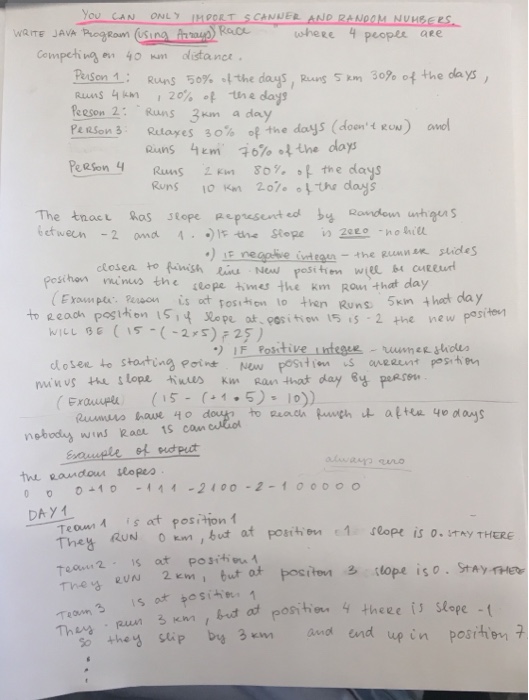 YOU CAN ONLY IMPORT SCANNER AND RANDOM NUMBERS.
WRITE JAVA Program (using Arrays) Race where 4 people are
competing on 40 km distance.
Person 1: Runs 50% of the days, Runs 5 km 30% of the days,
Runs 4km, 20% of the days
Person 2: Runs 3km a day
Person 3 Relaxes 30% of the days (doesn't RUN) and
Runs 4km 70% of the days
Person 4 Runs 2 km 80% of the days
Runs 10 km 20% of the days
The track has slope Represented by Random intigers
between -2 and 1. •) IF the slope is zero - no hill
•) IF negative integer - the runner slides
closer to finish line. New position will be current
position minus the slope times the km ran that day
(Example: Person is at position 10 then Runs 5km that day
to reach position 15, if slope at position 15 is -2 the new position
WILL BE (15 - (-2*5) = 25)
•) IF Positive integer - runner slides
closer to starting point. New position is current position
minus the slope times km ran that day By person.
(Example (15 - (+1*5) = 10))
Runners have 40 days to reach finish if after 40 days
nobody wins Race is cancelled
Example of output
always zero
the random slopes.
0 0 0 -1 0 -1 1 1 -2 1 0 0 -2 -1 0 0 0 0 0
DAY 1
Team 1 is at position 1
They RUN 0 km, but at position 1 slope is 0. STAY THERE
Team 2 is at position 1
They RUN 2 km, but at position 3 slope is 0. STAY THERE
Team 3 is at position 1
They run 3 km, but at position 4 there is slope -1
So they slip by 3 km and end up in position 7.